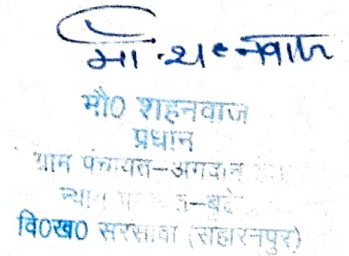 मो. शहनवाज
मौ0 शहनवाज
प्रधान
ग्राम पंचायत-अगवान
न्याय
वि0ख0 सरसावा (सहारनपुर)